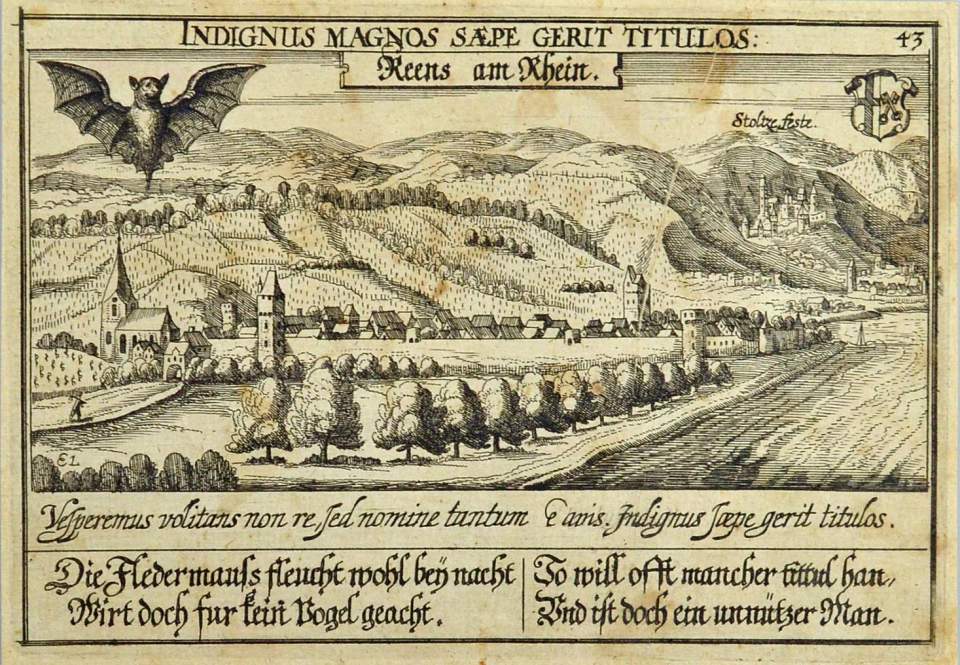 INDIGNUS MAGNOS SÆPE GERIT TITULOS:
43
Reens am Rhein.
Stoltze feste.
EL
Vesperemus volitans non re, sed nomine tantum E avis. Indignus sæpe gerit titulos.
Die Fledermauss fleucht wohl bey nacht
Wirt doch fur kein Vogel geacht.
So will offt mancher tittul han,
Vnd ist doch ein unnützer Man.